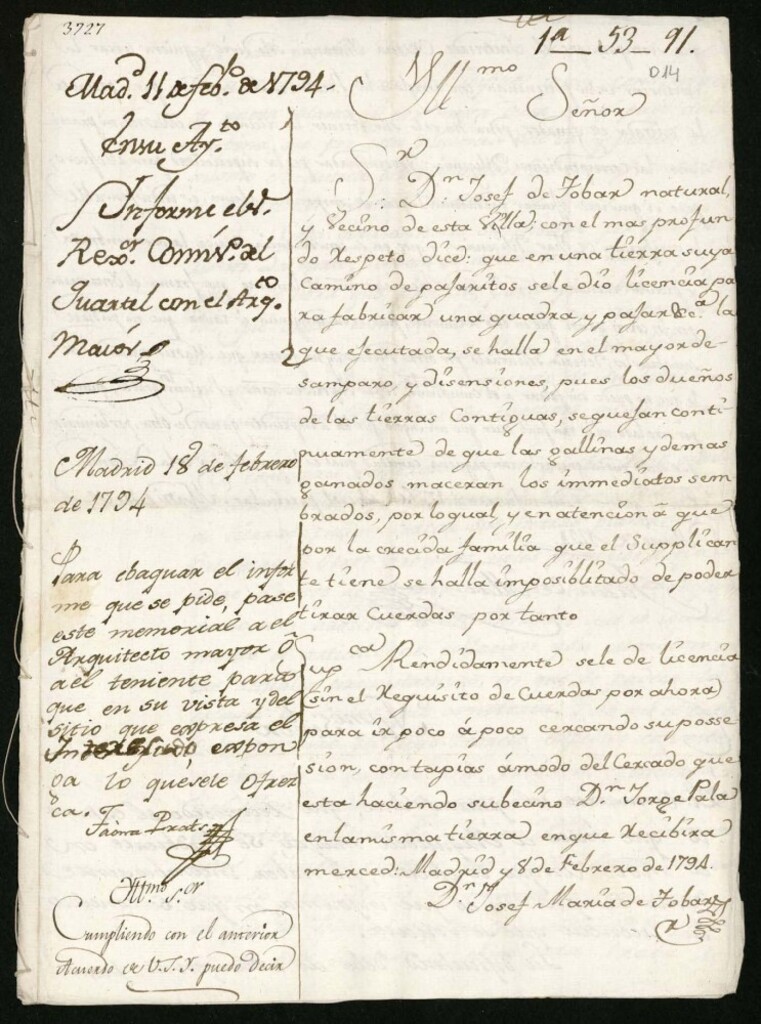 3727
1ª 53-91.
014
Madᵈ. 11 de febº. de 1794.
En su Ayᵗᵒ
Informe el
Quartel con el Arqᵗᵒ.
Maiór
Madrid 18 de febrero
de 1794
Para ebaquar el infor
me que se pide, pase
este memorial a el
Arquitecto mayor ó
a el teniente para
que en su vista y del
sitio que expresa el
Interesado expon
ga lo quesele ofrez
ca.
Prats
Illmo. Sor
Cumpliendo con el anterior
Acuerdo de V.S.Y. puedo decir
Yllmo
Señor
Sʳ.
Dⁿ. Josef de Tobar natural,
y vecino de esta villa; con el mas profun
do respeto dice: que en una tierra suya
Camino de pajaritos sele dio licencia pa
ra fabricar una quadra y pajar &cª. la
que ejecutada, se halla en el mayor de-
samparo, y disensiones, pues los dueños
de las tierras Contiguas, sequejan conti-
nuamente de que las gallinas y demas
ganados maceran los immediatos sem
brados, por loqual, y en atencion á que
por la crecida familia que el Supplican
te tiene se halla imposiblitado de poder
tirar Cuerdas por tanto
Supᶜᵃ Rendidamente sele de licencia
(sin el requisito de Cuerdas por ahora)
para ir poco á poco cercando su posse-
sion, con tapias ámodo del Cercado que
esta haciendo subecino Dⁿ. Jorge Pala
enlamisma tierra enque recibira
merced: Madrid y 8 de Febrero de 1794.
Dⁿ. Josef Maria de Tobar